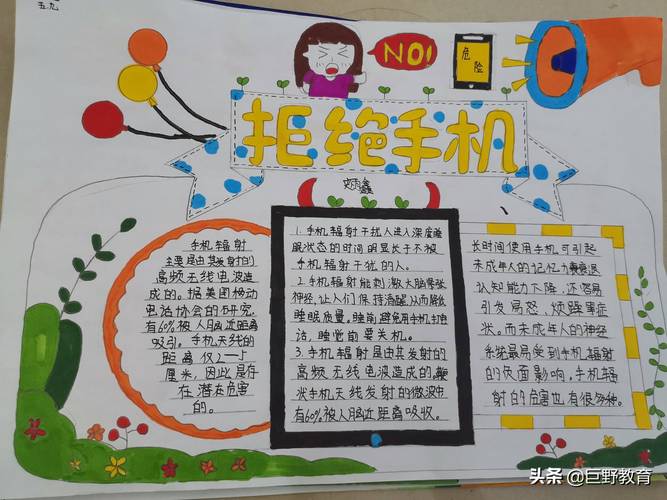 五九
NO!
危
险
拒绝手机
手机辐射
主要是由其发射的
高频无线电波造
成的。据美国移动
电话协会的研究,
有60%被人脑近距离
吸引。手机天线的
距离仅2—5
厘米,因此是存
在潜在危害
的。
1.手机辐射干扰人进入深度睡
眠状态的时间明显长于不被
手机辐射干扰的人。
2.手机辐射能刺激大脑
神经,让人们保持清醒,从而降低
睡眠质量,睡前避免用手机打电
话,睡觉前要关机。
3.手机辐射是由其发射的
高频无线电波造成的,
状手机天线发射的微波中
有60%被人脑近距离吸收。
长时间使用手机可引起
未成年人的记忆力衰退
认知能力下降,还容易
引发焦虑、烦躁等症
状。而未成年人的神经
系统最易受到手机辐射
的负面影响,手机辐
射的危害也有很多种。
头条 @巨野教育